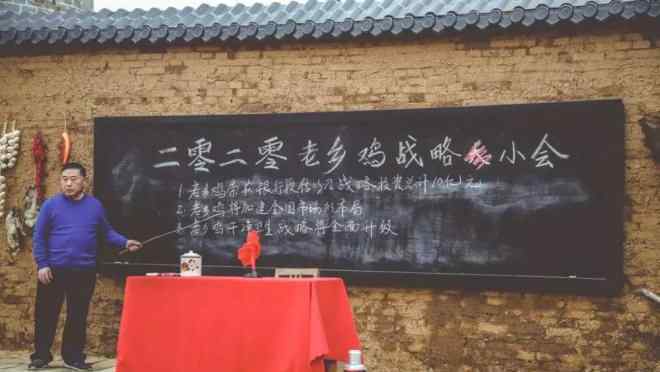 二零二零老乡鸡战略 小会
1.老乡鸡荣获银行授信以及战略投资总计10亿元
2.老乡鸡将加速全国市场的布局
3.老乡鸡干净卫生战略将全面升级